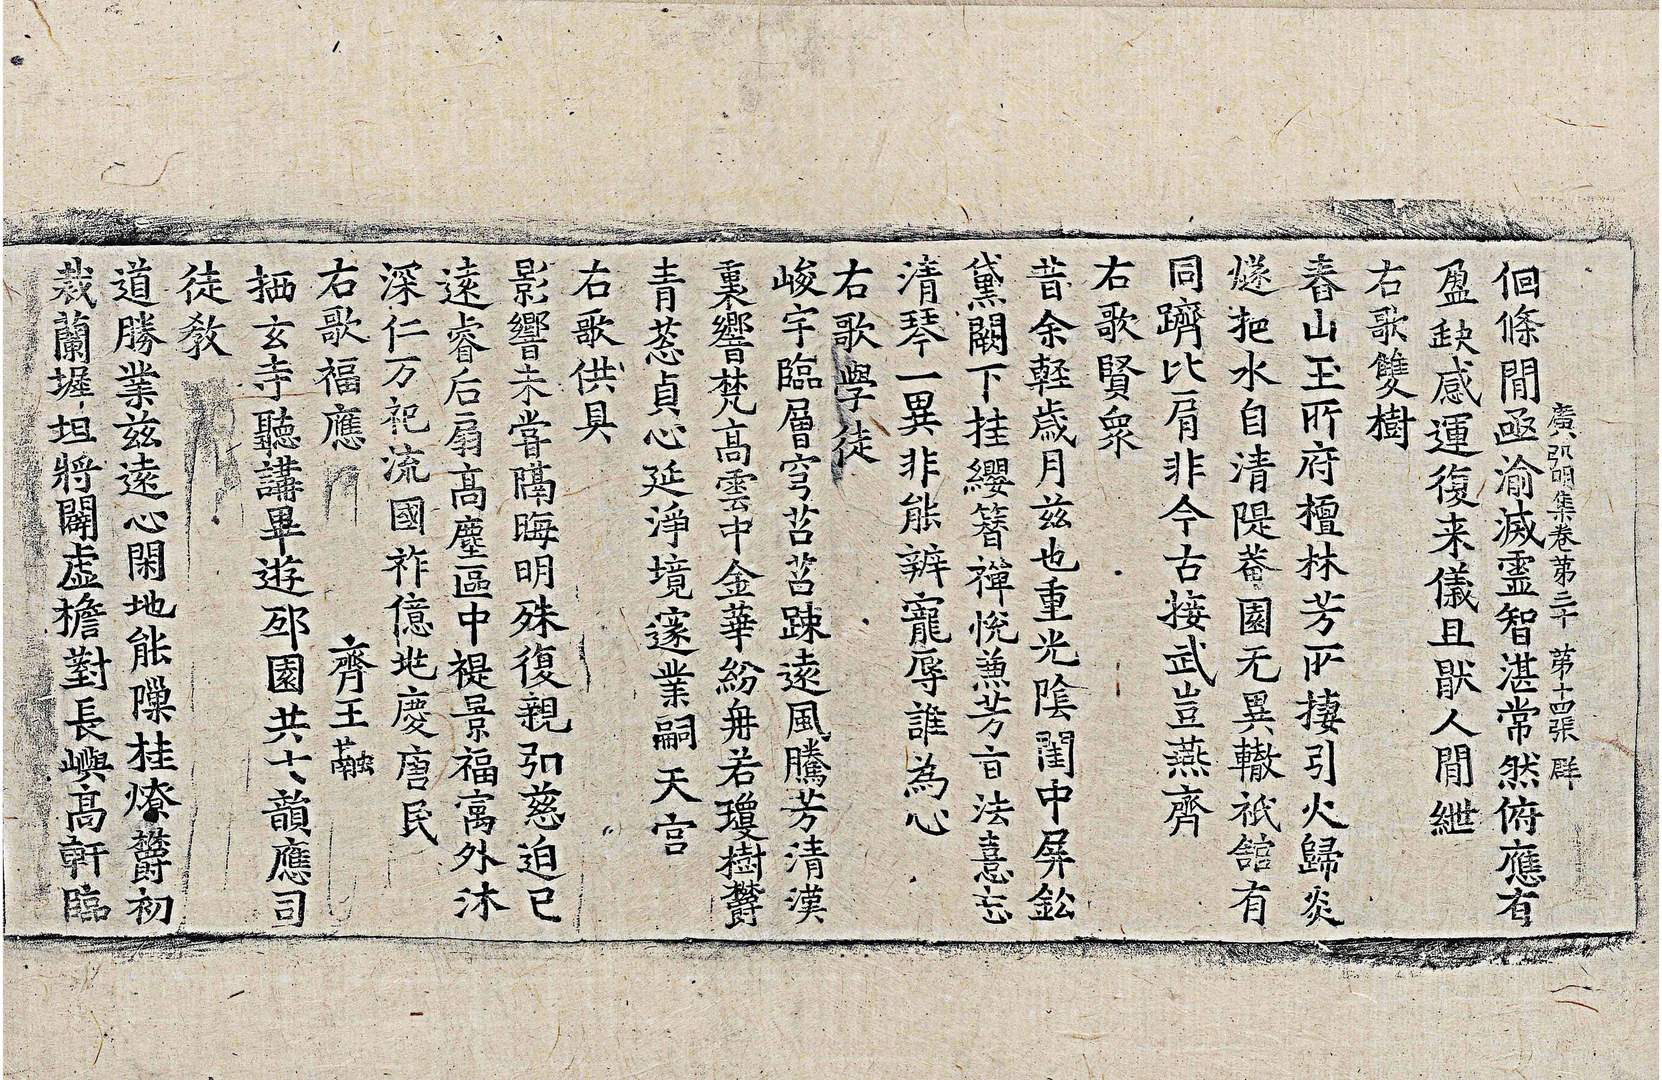 廣弘明集卷第三十　第十四張　群
佪條閒亟渝滅靈智湛常然俯應有
盈缺感運復来儀且猒人閒紲
右歌雙樹
舂山玉所府檀林芳所棲引火歸炎
燧挹水自清隄菴園无異轍祇舘有
同躋比肩非今古接武豈燕齊
右歌賢衆
昔余輕歲月兹也重光陰閨中屏鈆
黛闕下挂纓簪禪悅兼芳旨法憙忘
清琴一異非能辯寵辱誰為心
右歌學徒
峻宇臨層穹苕苕踈遠風騰芳清漢
裏響梵高雲中金華紛冉若瓊樹欝
青葱貞心延淨境邃業嗣天宫
右歌供具
影響未甞隔晦明殊復親弘慈迫已
遠睿后扇高塵區中禔景福寓外沐
深仁万祀流國祚億兆慶唐民
右歌福應
栖玄寺聽講畢遊邸園共七韻應司
徒教　齊王融
道勝業兹遠心閑地能隟桂橑欝初
裁蘭墀坦將闢虛檐對長嶼高軒臨